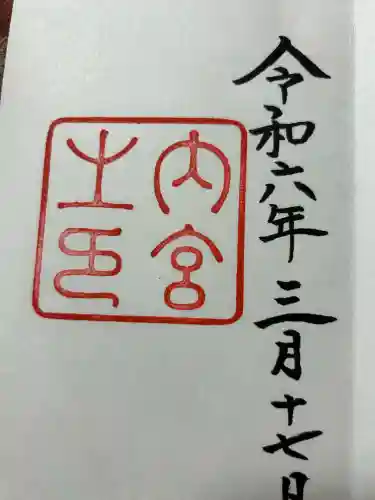 令和六年三月十七日
内宮之印